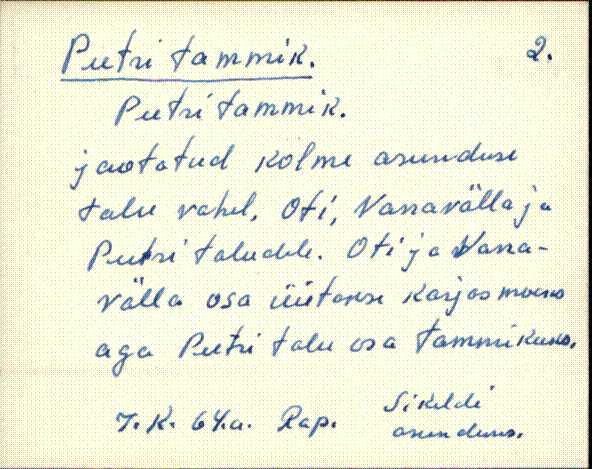 Peetri tammik. 2.
Peetri tammik.
jaotatud kolme asunduse
talu vahel, Oti, Vanavälla ja
Peetri taludele. Oti ja Vana-
välla osa üütakse karjasmaaks
aga Peetri talu osa tammikuks.
7. K. 64.a. Rap. Sikeldi
asundus.